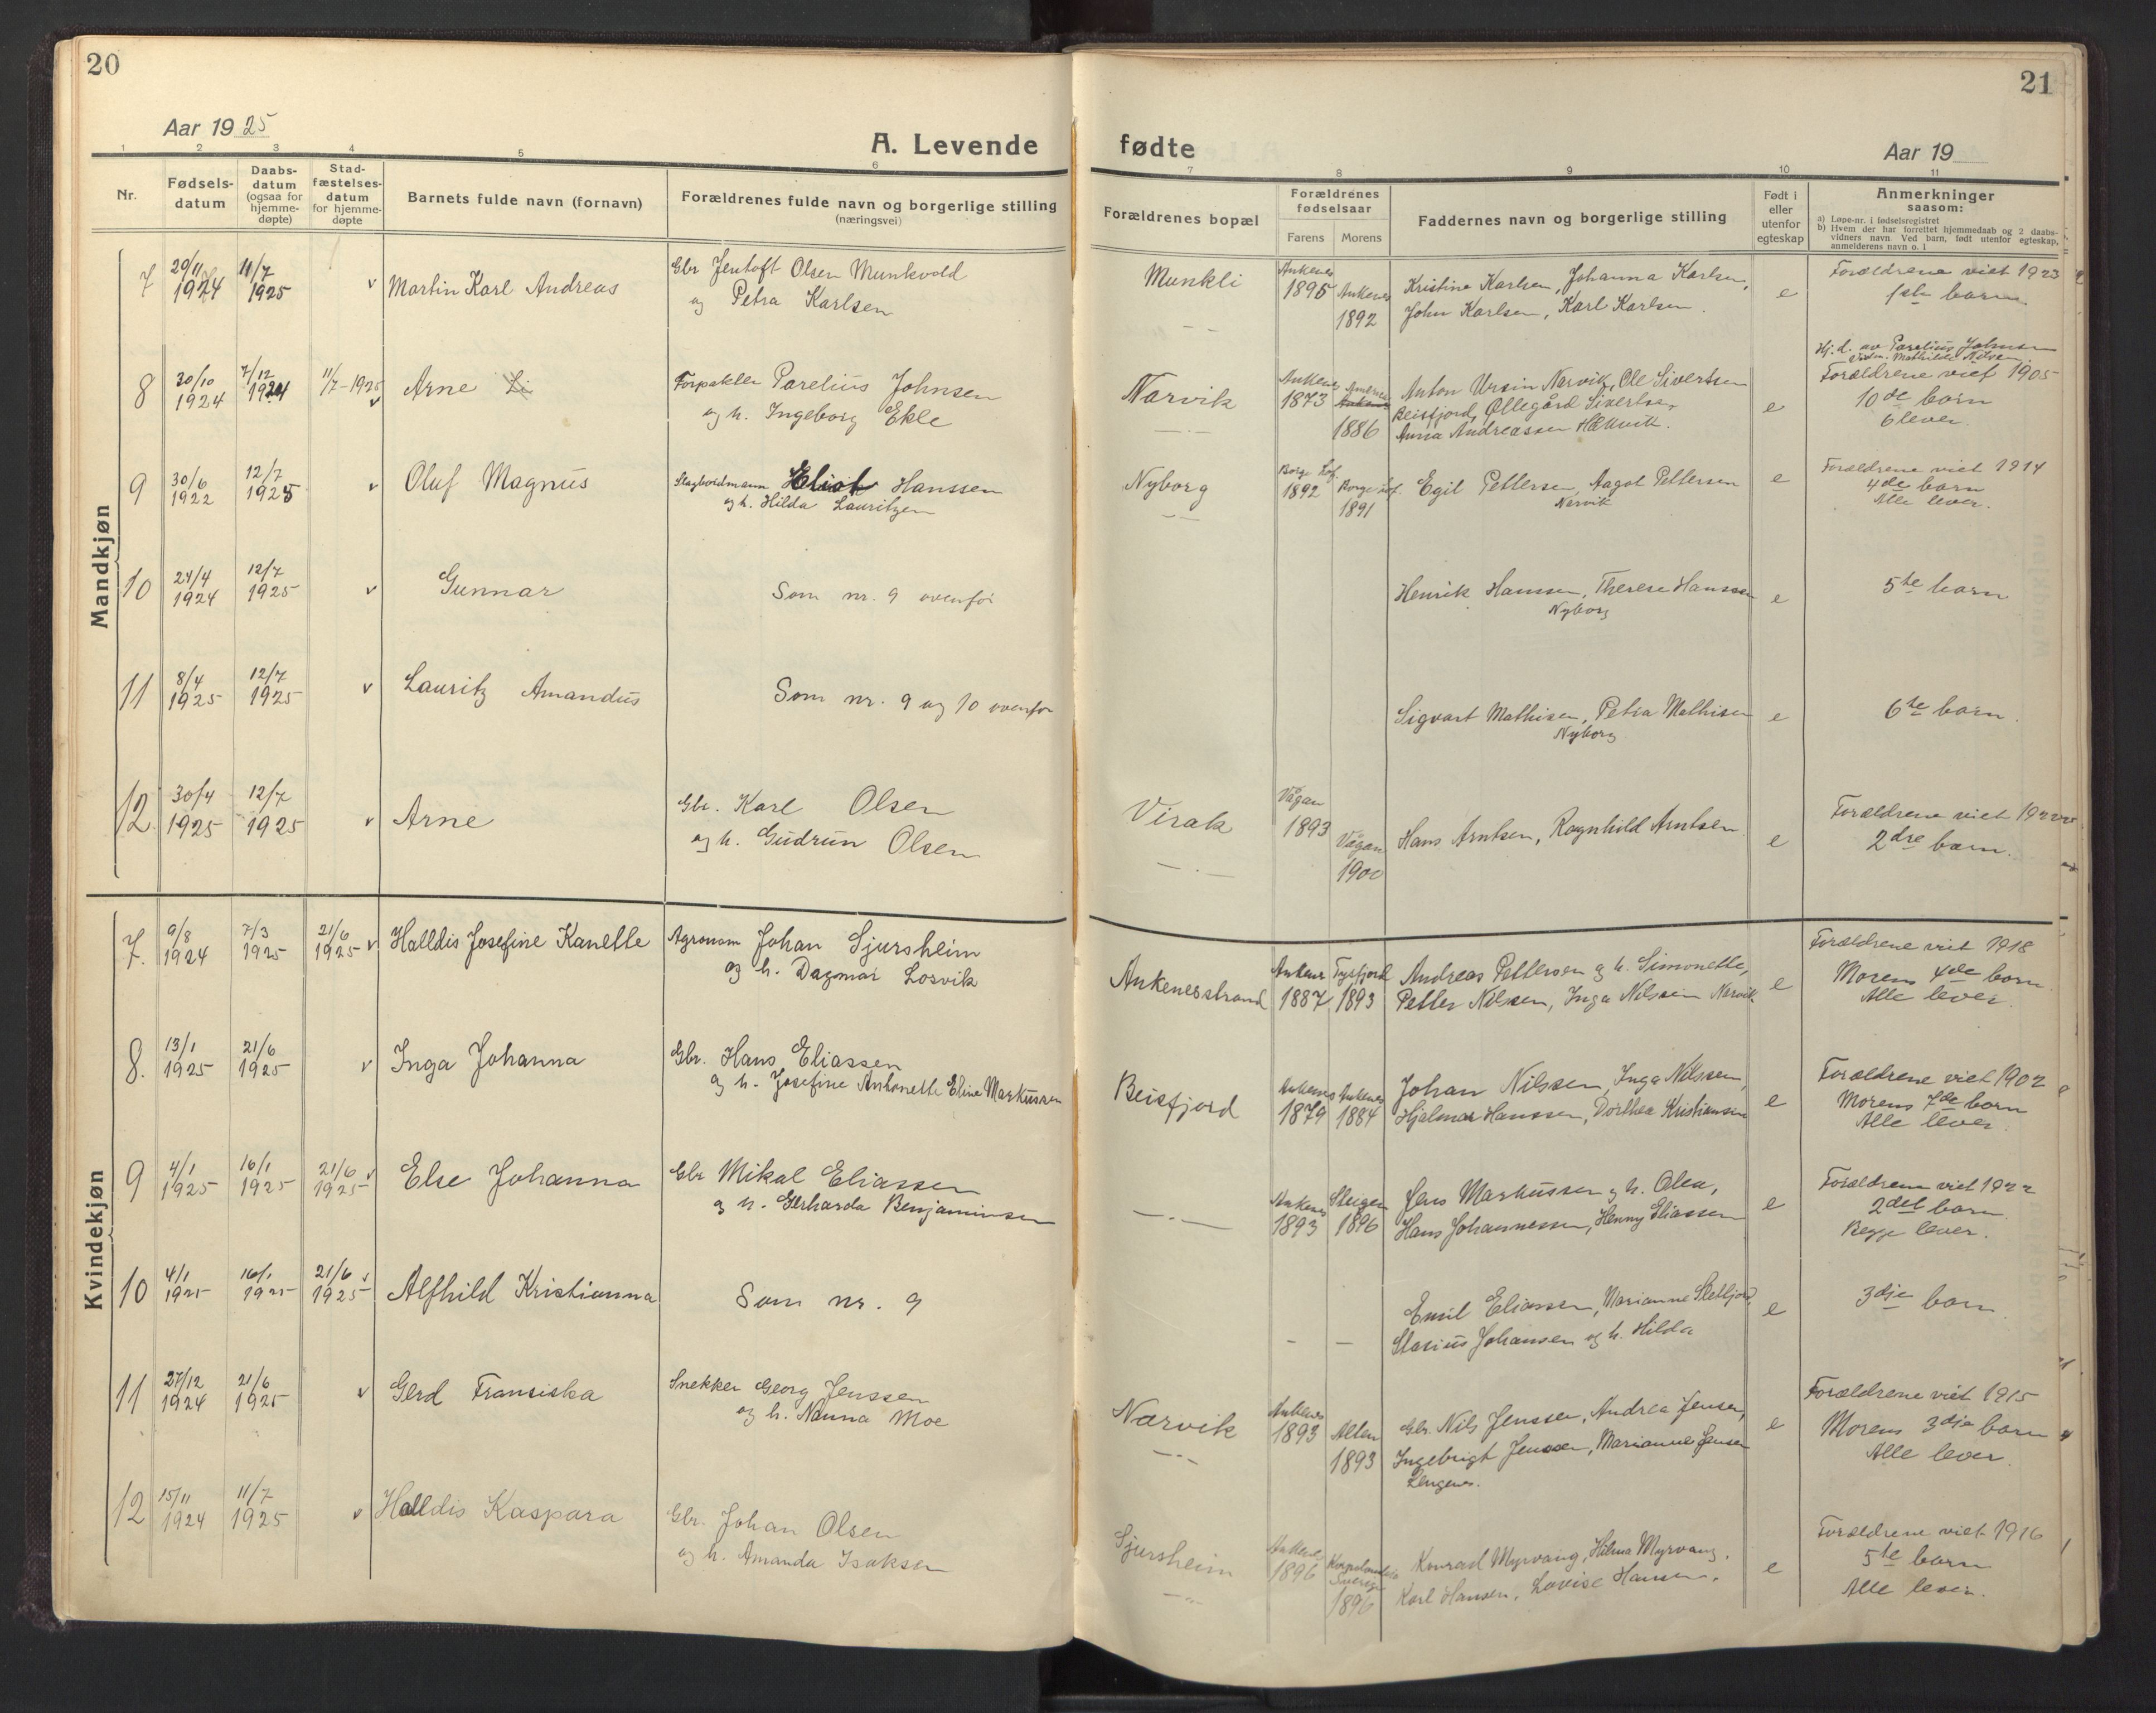 20
Aar 1925
A. Levende
1 2 3 4 5 6
Nr.
Fødsels-
datum
Daabs-
datum
(ogsaa for
hjemme-
døpte)
Stad-
fæstelses-
datum
for hjemme-
døpte
Barnets fulde navn (fornavn)
Forældrenes fulde navn og borgerlige stilling
(næringsvei)
Mandkjøn
7 29/11 1924 11/7 1925 v Martin Karl Andreas
Gbr Jentoft Olsen Munkvold
og Petra Karlsen
8 30/10 1924 7/12 1924 11/7-1925 v Arne Li
Forpakter Parelius Johnsen
og h. Ingeborg Ekle
9 30/6 1922 12/7 1925 v Oluf Magnus
Hanssen
og h. Hilda Lauritzen
10 24/4 1924 12/7 1925 v Gunnar
Som nr. 9 ovenfor
11 8/4 1925 12/7 1925 v Lauritz Amandus
Som nr. 9 og 10 ovenfor
12 30/4 1925 12/7 1925 v Arne
Gbr. Karl Olsen
og h. Gudrun Olsen
Kvindekjøn
7. 9/8 1924 7/3 1925 21/6 1925 v Halldis Josefine Kanelle
Agronom Johan Sjursheim
og h. Dagmar Losvik
8. 13/1 1925 21/6 1925 v Inga Johanna
Gbr. Hans Eliassen
og h. Josefine Antonette Eline Markussen
9 4/1 1925 16/1 1925 21/6 1925 v Else Johanna
Gbr Mikal Eliassen
og h. Gerharda Benjaminsen
10 4/1 1925 16/1 1925 21/6 1925 v Alfhild Kristianna
Som nr. 9
11 27/12 1924 21/6 1925 v Gerd Fransiska
Snekker Georg Jenssen
og h. Nanna Moe
12 15/11 1924 11/7 1925 v Halldis Kaspara
Gbr. Johan Olsen
og h. Amanda Isaksen
21
fødte
Aar 19
7 8 9 10 11
Forældrenes bopæl
Forældrenes
fødselsaar
Farens Morens
Faddernes navn og borgerlige stilling
Født i
eller
utenfor
egteskap
Anmerkninger
saasom:
a) Løpe-nr. i fødselsregistret
b) Hvem der har forrettet hjemmedaab og 2 daabs-
vidners navn. Ved barn, født utenfor egteskap,
anmelderens navn o. l
Munkli
Ankenes 1895 Ankenes 1892
Kristine Karlsen, Johanna Karlsen,
John Karlsen, Karl Karlsen.
e
Forældrene viet 1923
1ste barn
Narvik
Ankenes 1873 1886
Anton Ursin Narvik, Ole Sivertsen
Beisfjord, Ollegård Sivertsen,
Anna Andreassen Håkvik.
e
Hj.d. av Parelius Johnsen
Mathilde Nilsen.
Forældrene viet 1905
10de barn
6 lever.
Nyborg
Borge Lof. 1892 Borge Lof. 1891
Egil Pettersen, Aagot Pettersen
Narvik
e
Forældrene viet 1914
4de barn
Alle lever.
Henrik Hanssen, Therese Hanssen
Nyborg
e
5te barn
Sigvart Mathisen, Petra Mathisen
Nyborg
e
6te barn.
Virak
Vågan 1893 Vågan 1900
Hans Arntsen, Ragnhild Arntsen
e
Forældrene viet 1922
2dre barn.
Ankenesstrand
Ankenes 1887 Tysfjord 1893
Andreas Pettersen og h. Simonette,
Petter Nilssen, Inga Nilssen Narvik.
e
Forældrene viet 1918
Morens 4de barn.
Alle lever.
Beisfjord
Ankenes 1879 Ankenes 1884
Johan Nilssen, Inga Nilssen,
Hjalmar Hanssen, Dorthea Kristiansen
e
Forældrene viet 1902
Morens 7de barn
Alle lever.
Ankenes 1893 Steigen 1896
Jens Markussen og h. Olea,
Hans Johannessen, Henny Eliassen
e
Forældrene viet 1922
2det barn.
Begge lever.
Emil Eliassen, Marianne Sletfjord,
Stasius Johansen og h. Hilda
e
3dje barn
Narvik
Ankenes 1893 Alten 1893
Gbr. Nils Jenssen, Andrea Jensen,
Ingebrigt Jenssen, Marianne Jensen
Lengenes.
e
Forældrene viet 1915
Morens 3dje barn
Alle lever.
Sjursheim
Ankenes 1896 Sverige 1896
Konrad Myrvang, Hilma Myrvang,
Karl Hansen, Lovise Hansen.
e
Forældrene viet 1916
5te barn
Alle lever.